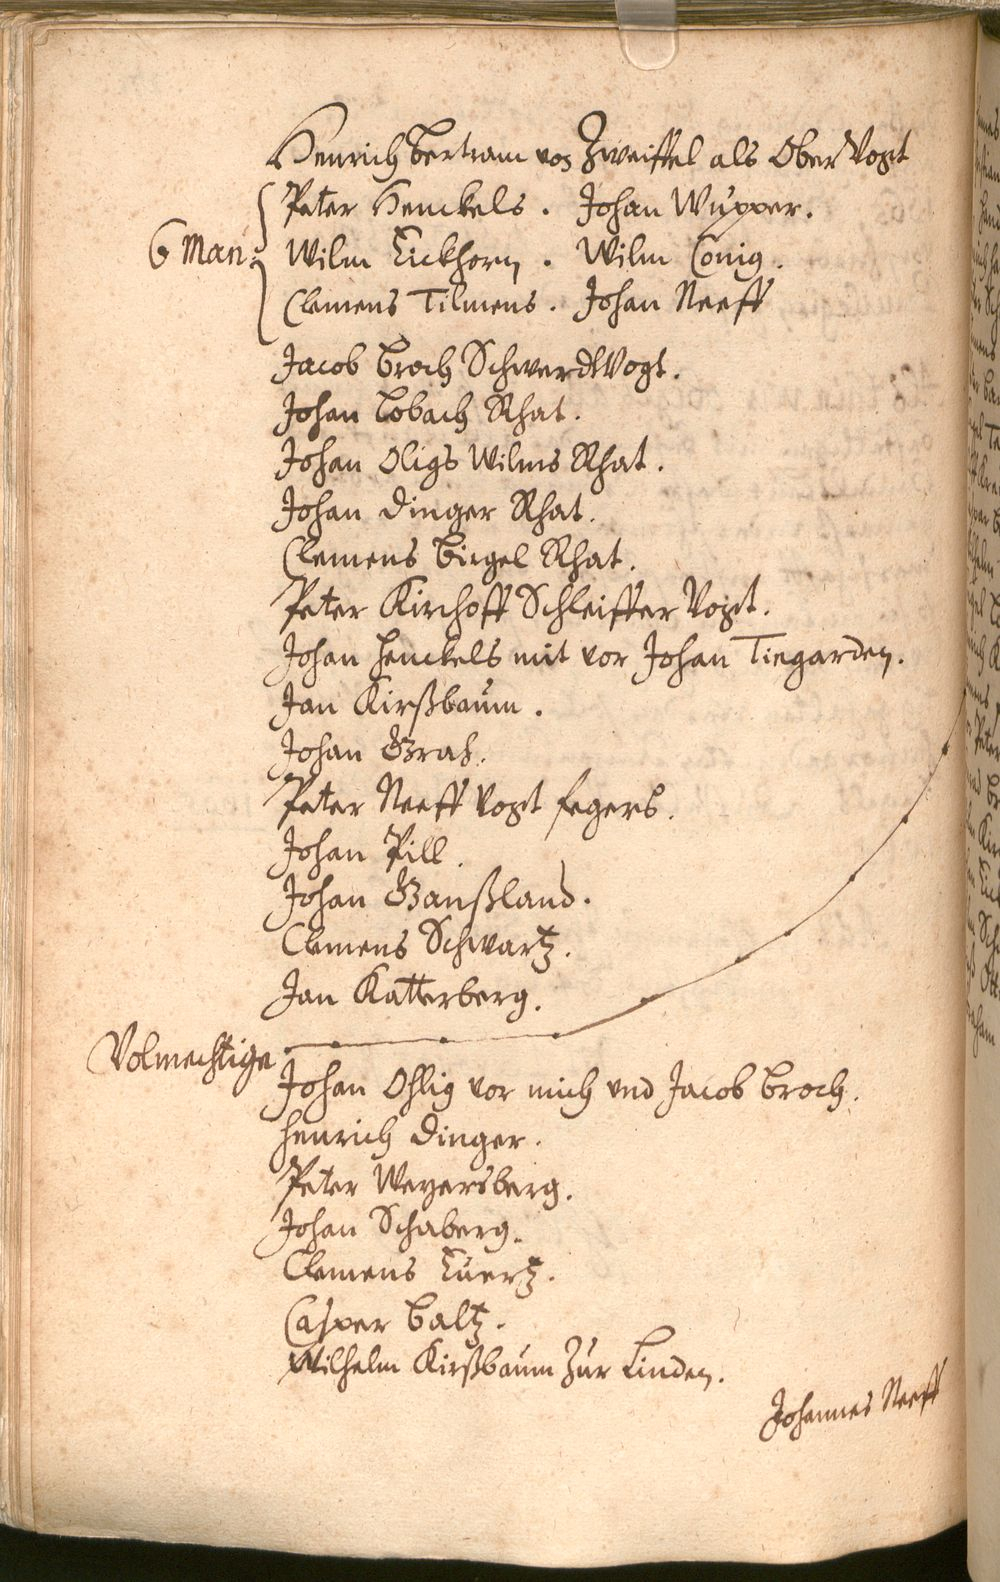 Henrich Bertram von Zweiffel als Ober Vogt
Peter Henckels . Johan Wupper.
6 Man: Wilm Eickhorn . Wilm Conig.
Clemens Tilmens . Johan Neeff
Jacob Broch Schwerdt Vogt.
Johan Lobach Rhat.
Johan Oligs Wilms Rhat.
Johan Dinger Rhat.
Clemens Birgel Rhat.
Peter Kirchoff Schleiffer Vogt.
Johan Henckels mit vor Johan Tiegarden.
Jan Kirßbaum.
Johan Grah.
Peter Neeff Vogt fegers.
Johan Pill.
Johan Ganßland.
Clemens Schwartz.
Jan Katterberg.
Volmechtige
Johan Ohlig vor mich vnd Jacob Broch.
Henrich Dinger.
Peter Weyersberg.
Johan Schaberg.
Clemens Kuertz.
Casper Baltz.
Wilhelm Kirßbaum Zur Linden.
Johannes Neeff